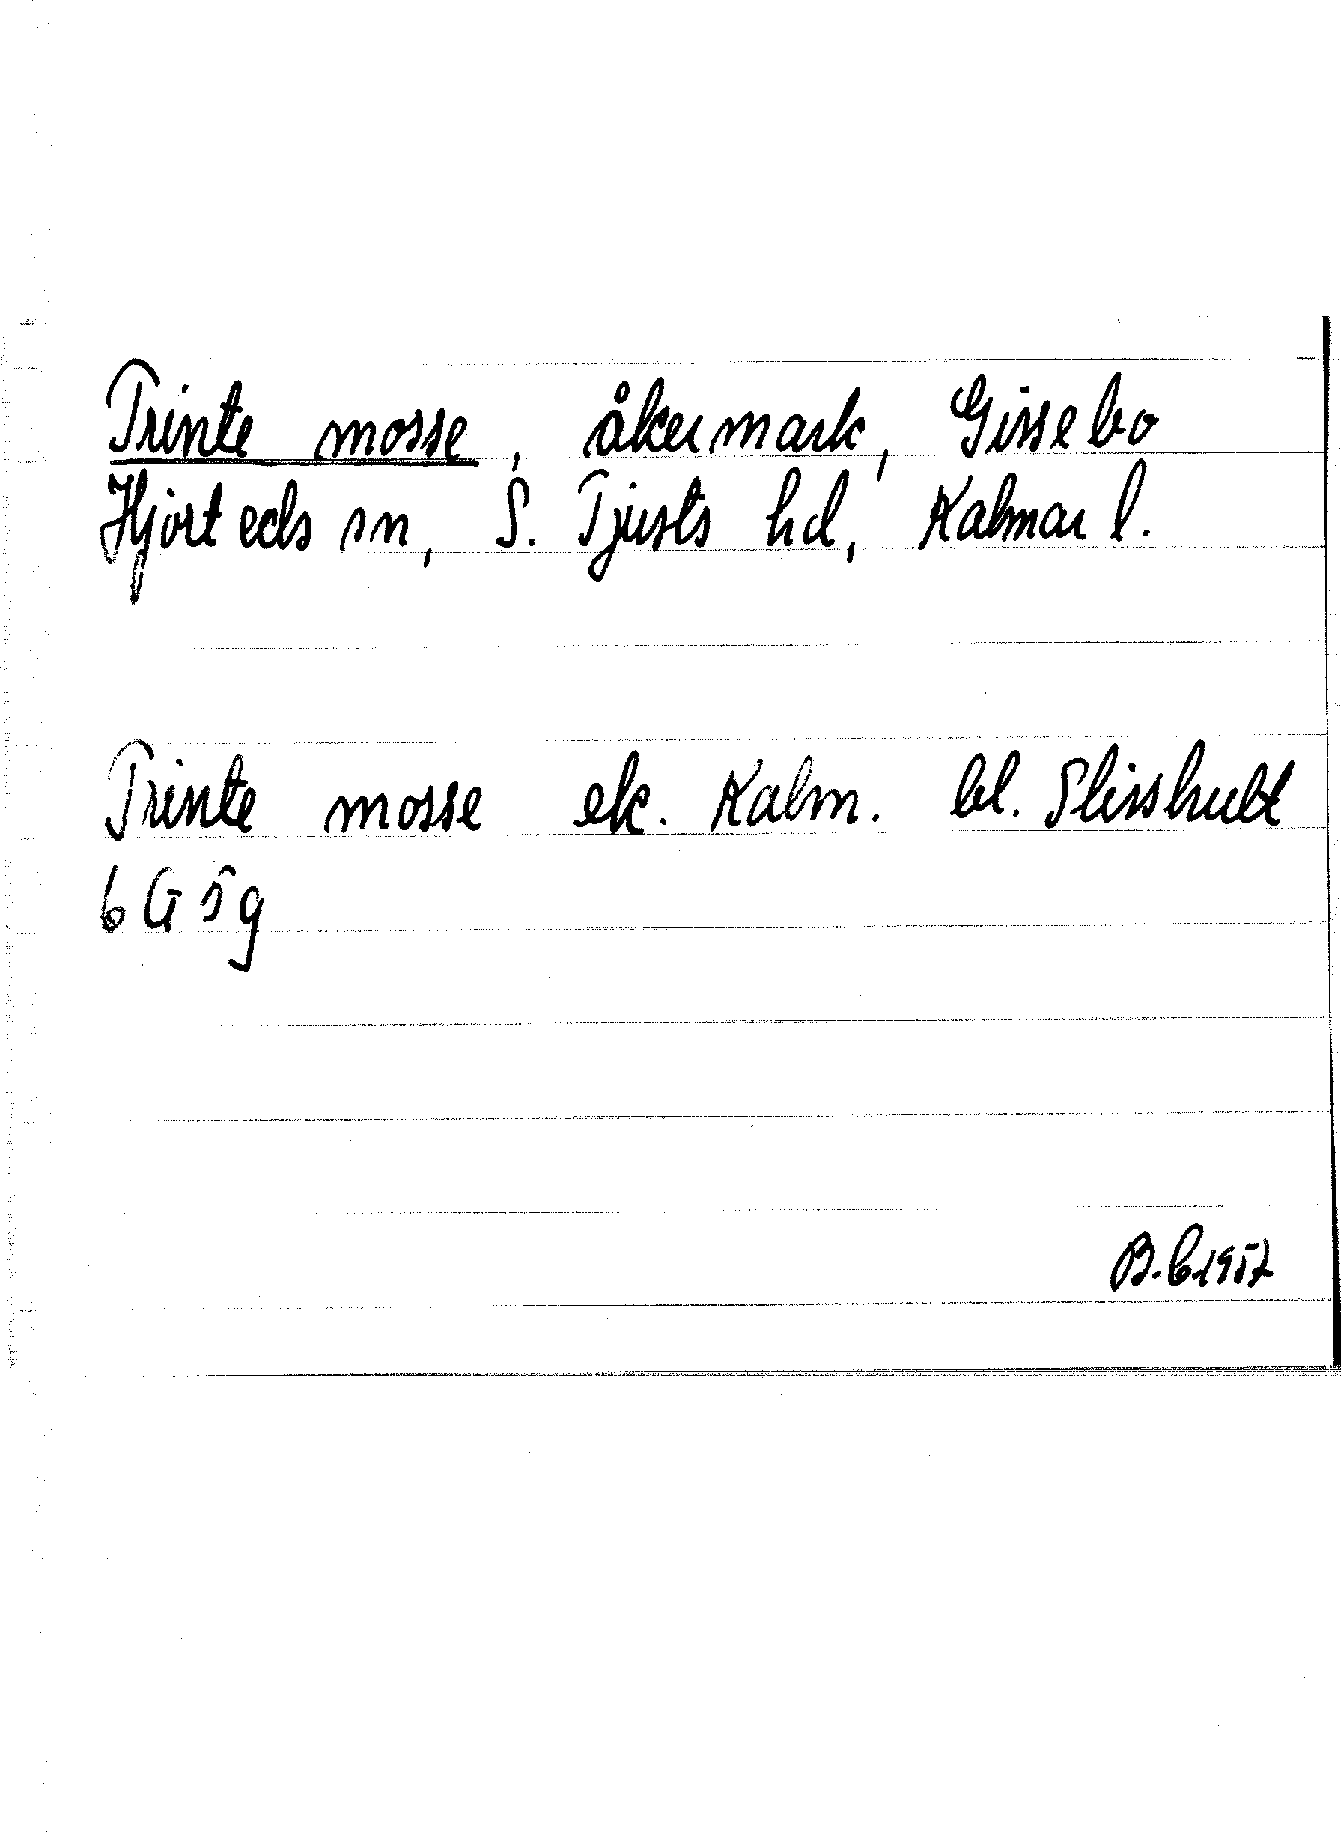 Trinte mosse, åkermark, Gissebo
Hjorteds sn, S. Tjusts hd, Kalmar l.
Trinte mosse ek. Kalm. bl. Slisshult
6 G 5 g
B.E.1957